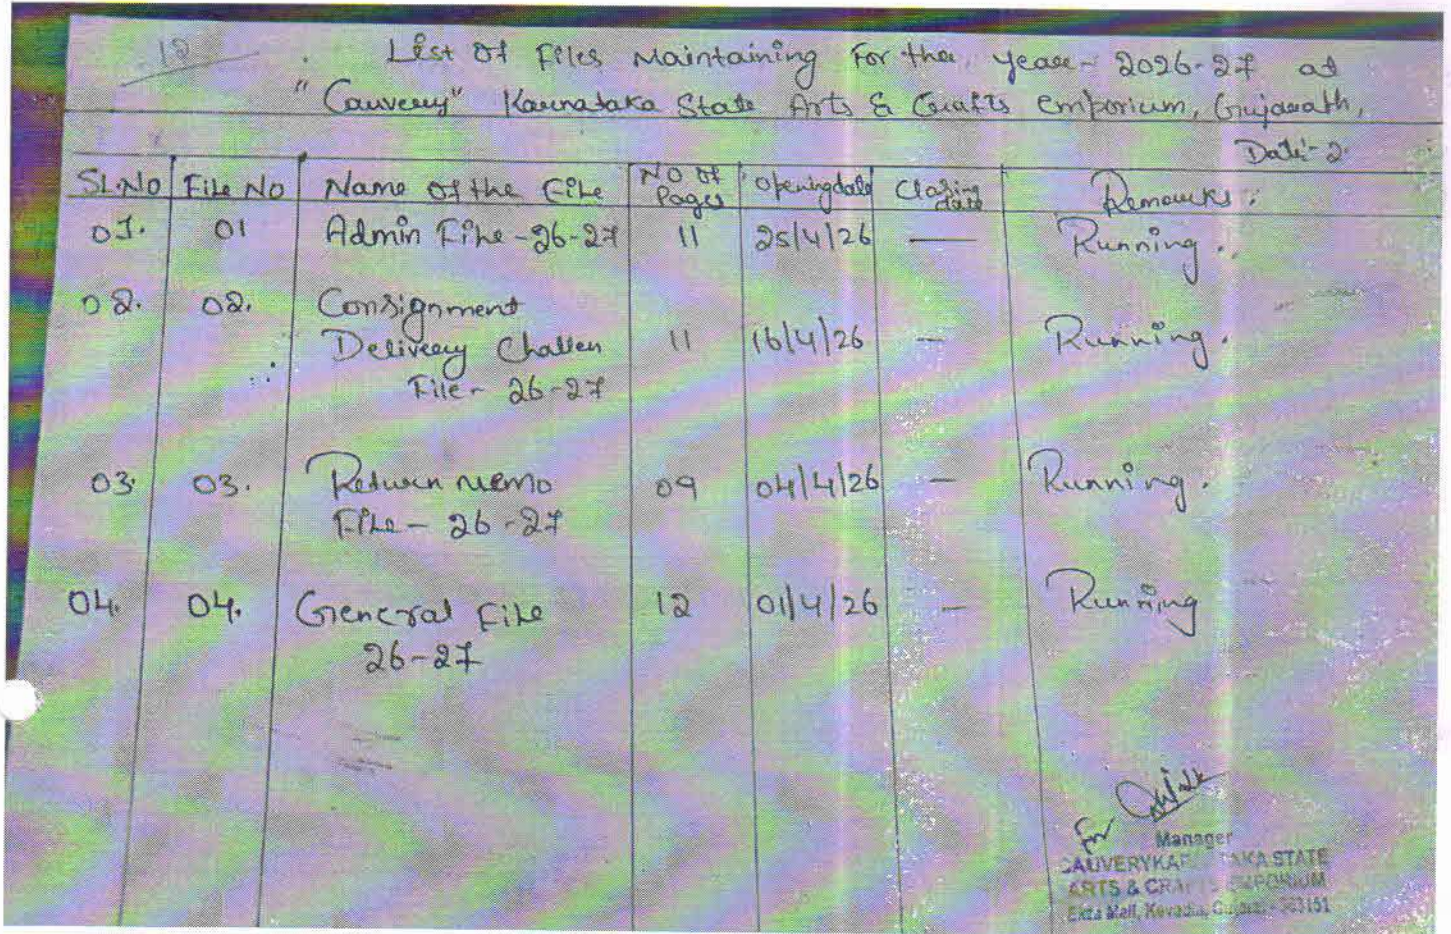 12
List of Files Maintaining For the year - 2026-27 at
"Cauvery" Karnataka State Arts & Crafts emporium, Gujarath,
Date:- 2.
SL.No File No Name of the File No of Pages Opening date Closing date Remarks:
01. 01 Admin File - 26-27 11 25/4/26 — Running.
02. 02. Consignment
Delivery Challen 11 16/4/26 — Running.
File - 26-27
03. 03. Return memo 09 04/4/26 — Running.
File - 26-27
04. 04. General File 12 01/4/26 — Running
26-27
For
Manager
CAUVERY STATE
ARTS & EMPORIUM
Ekta Mall, Kevadia,